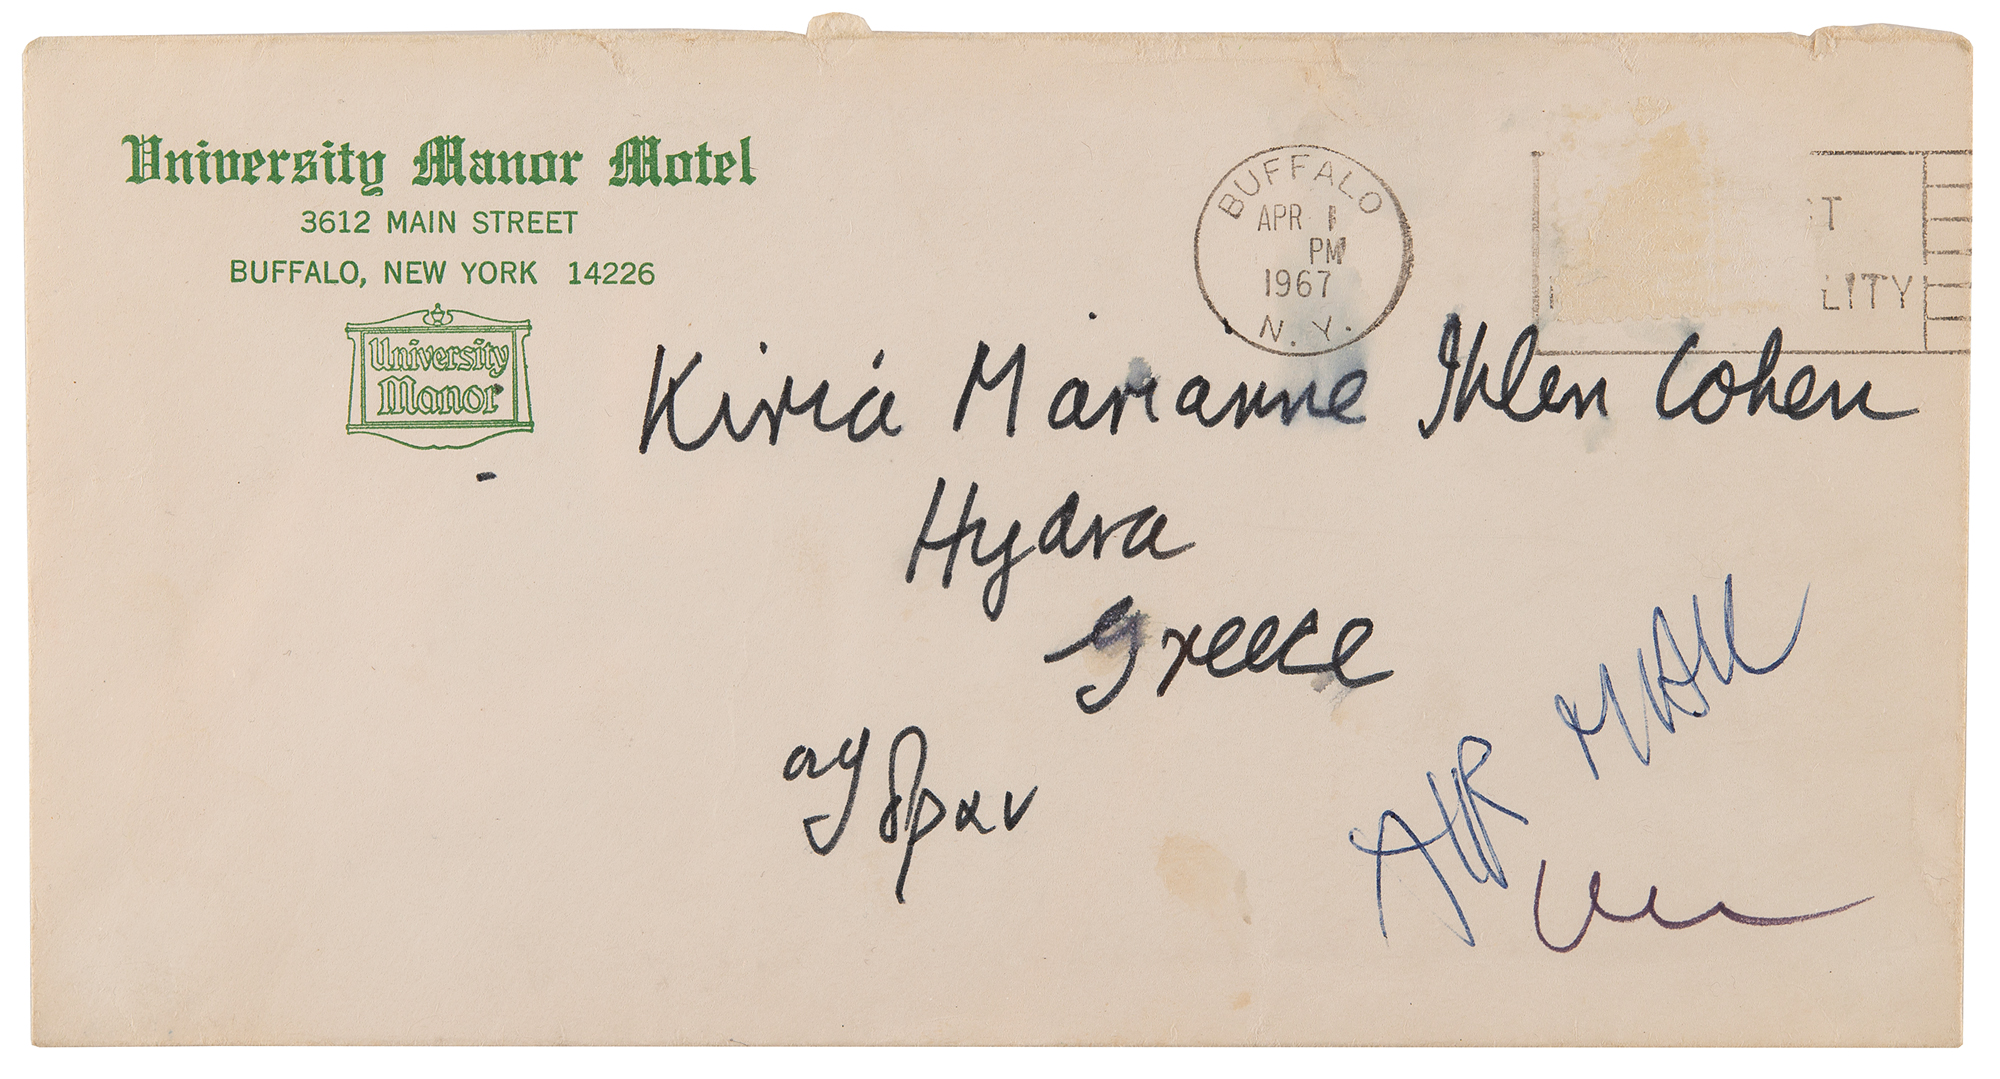 University Manor Motel
3612 MAIN STREET
BUFFALO, NEW YORK 14226
University
Manor
BUFFALO
APR 1
PM
1967
N. Y.
LITY
Kiriá Marianne Ihlen Cohen
Hydra
Greece
AIR MAIL